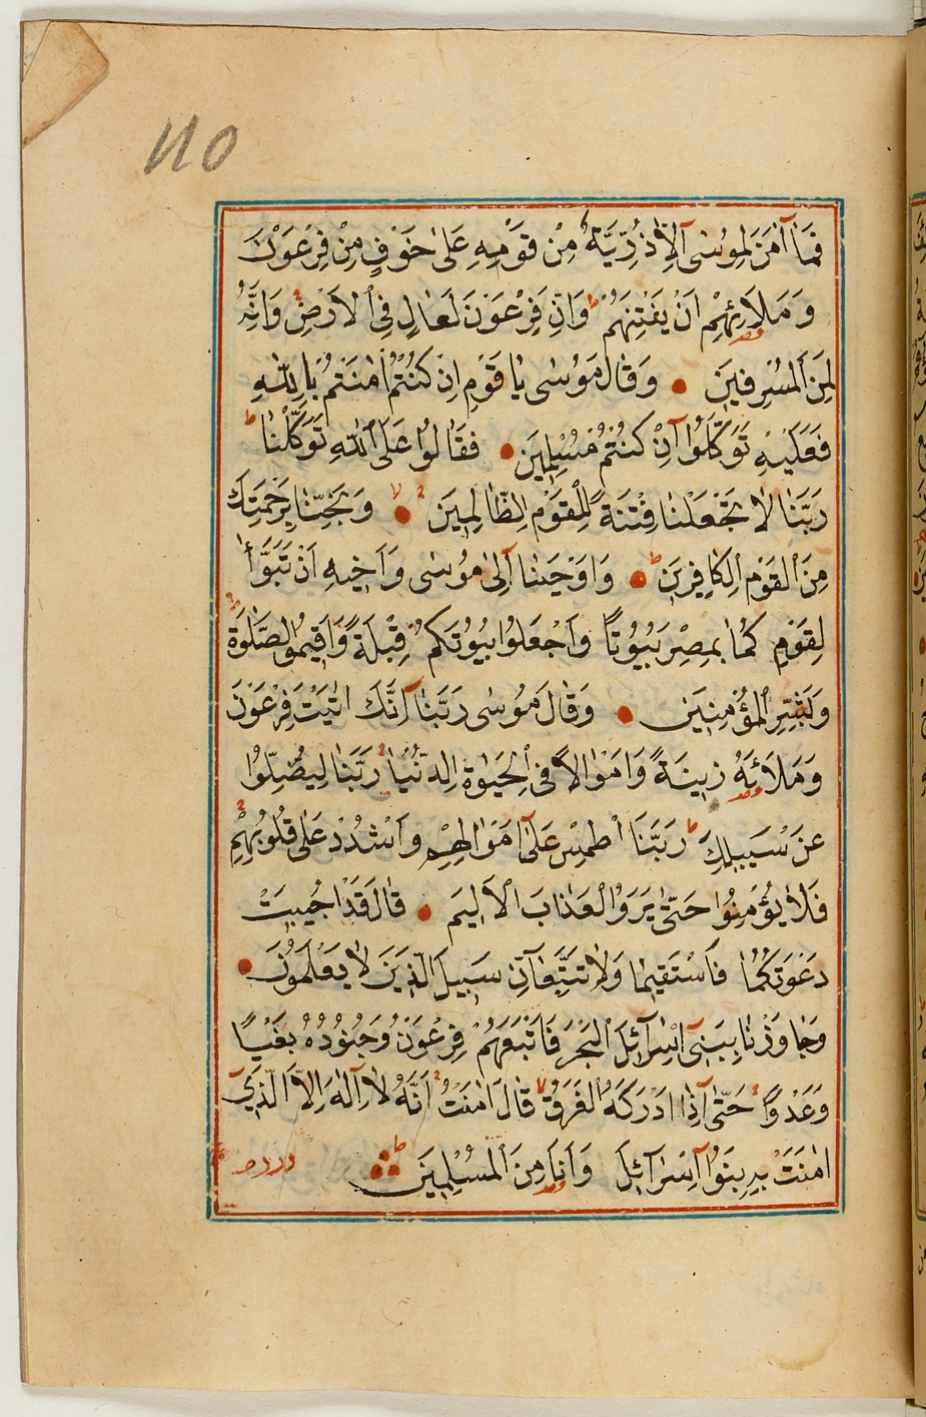 ١١٥
فَمَا اٰمَنَ لِمُوسٰى اِلَّا ذُرِّيَّةٌ مِنْ قَوْمِهِ عَلٰى خَوْفٍ مِنْ فِرْعَوْنَ
وَمَلَائِهِمْ اَنْ يَفْتِنَهُمْ وَاِنَّ فِرْعَوْنَ لَعَالٍ فِي الْاَرْضِ وَاِنَّهُ
لَمِنَ الْمُسْرِفِينَ وَقَالَ مُوسٰى يَا قَوْمِ اِنْ كُنْتُمْ اٰمَنْتُمْ بِاللّٰهِ
فَعَلَيْهِ تَوَكَّلُوا اِنْ كُنْتُمْ مُسْلِمِينَ فَقَالُوا عَلَى اللّٰهِ تَوَكَّلْنَا
رَبَّنَا لَا تَجْعَلْنَا فِتْنَةً لِلْقَوْمِ الظَّالِمِينَ وَنَجِّنَا بِرَحْمَتِكَ
مِنَ الْقَوْمِ الْكَافِرِينَ وَاَوْحَيْنَا اِلٰى مُوسٰى وَاَخِيهِ اَنْ تَبَوَّاٰ
لِقَوْمِ كُمَا بِمِصْرَ بُيُوتًا وَاجْعَلُوا بُيُوتَكُمْ قِبْلَةً وَاَقِيمُوا الصَّلٰوةَ
وَبَشِّرِ الْمُؤْمِنِينَ وَقَالَ مُوسٰى رَبَّنَا اِنَّكَ اٰتَيْتَ فِرْعَوْنَ
وَمَلَائَهُ زِينَةً وَاَمْوَالًا فِي الْحَيٰوةِ الدُّنْيَا رَبَّنَا لِيُضِلُّوا
عَنْ سَبِيلِكَ رَبَّنَا اطْمِسْ عَلٰى اَمْوَالِهِمْ وَاشْدُدْ عَلٰى قُلُوبِهِمْ
فَلَا يُؤْمِنُوا حَتّٰى يَرَوُا الْعَذَابَ الْاَلِيمَ قَالَ قَدْ اُجِيبَتْ
دَعْوَتُكُمَا فَاسْتَقِيمَا وَلَا تَتَّبِعَانِّ سَبِيلَ الَّذِينَ لَا يَعْلَمُونَ
وَجَاوَزْنَا بِبَنِي اِسْرَائِلَ الْبَحْرَ فَاَتْبَعَهُمْ فِرْعَوْنُ وَجُنُودُهُ بَغْيًا
وَعَدْوًا حَتّٰى اِذَا اَدْرَكَهُ الْغَرَقُ قَالَ اٰمَنْتُ اَنَّهُ لَا اِلٰهَ اِلَّا الَّذِي
اٰمَنَتْ بِهِ بَنُوا اِسْرَائِلَ وَاَنَا مِنَ الْمُسْلِمِينَ